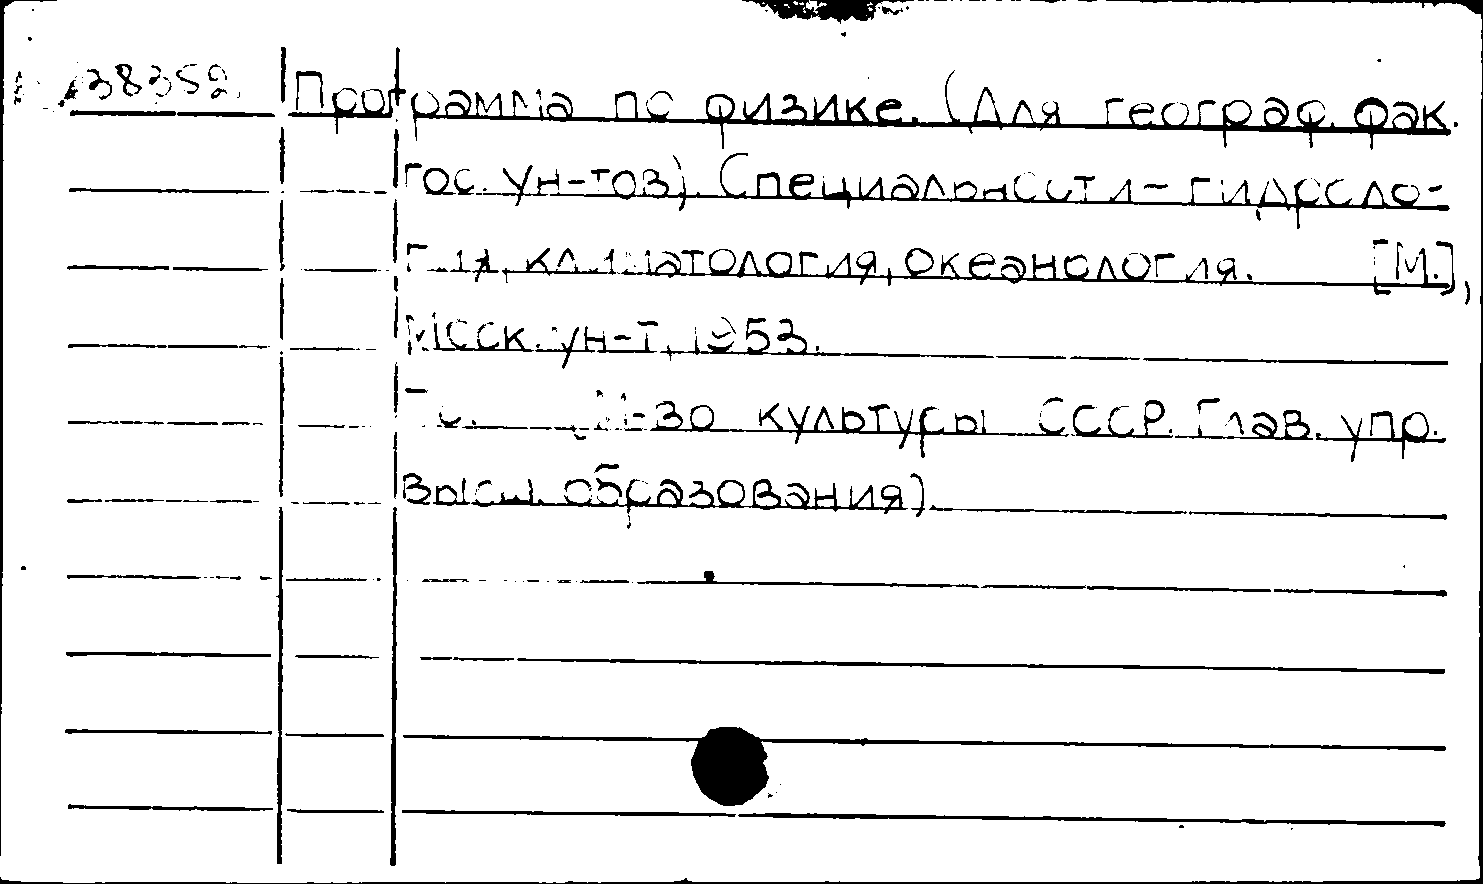 138352
Программа по физике. (Для географ. фак.
гос. ун-тов). Специальности - гидроло-
гия, климатология, океанология. [М.],
Моск. ун-т, 1953.
М-во культуры СССР. Глав. упр.
высш. образования).